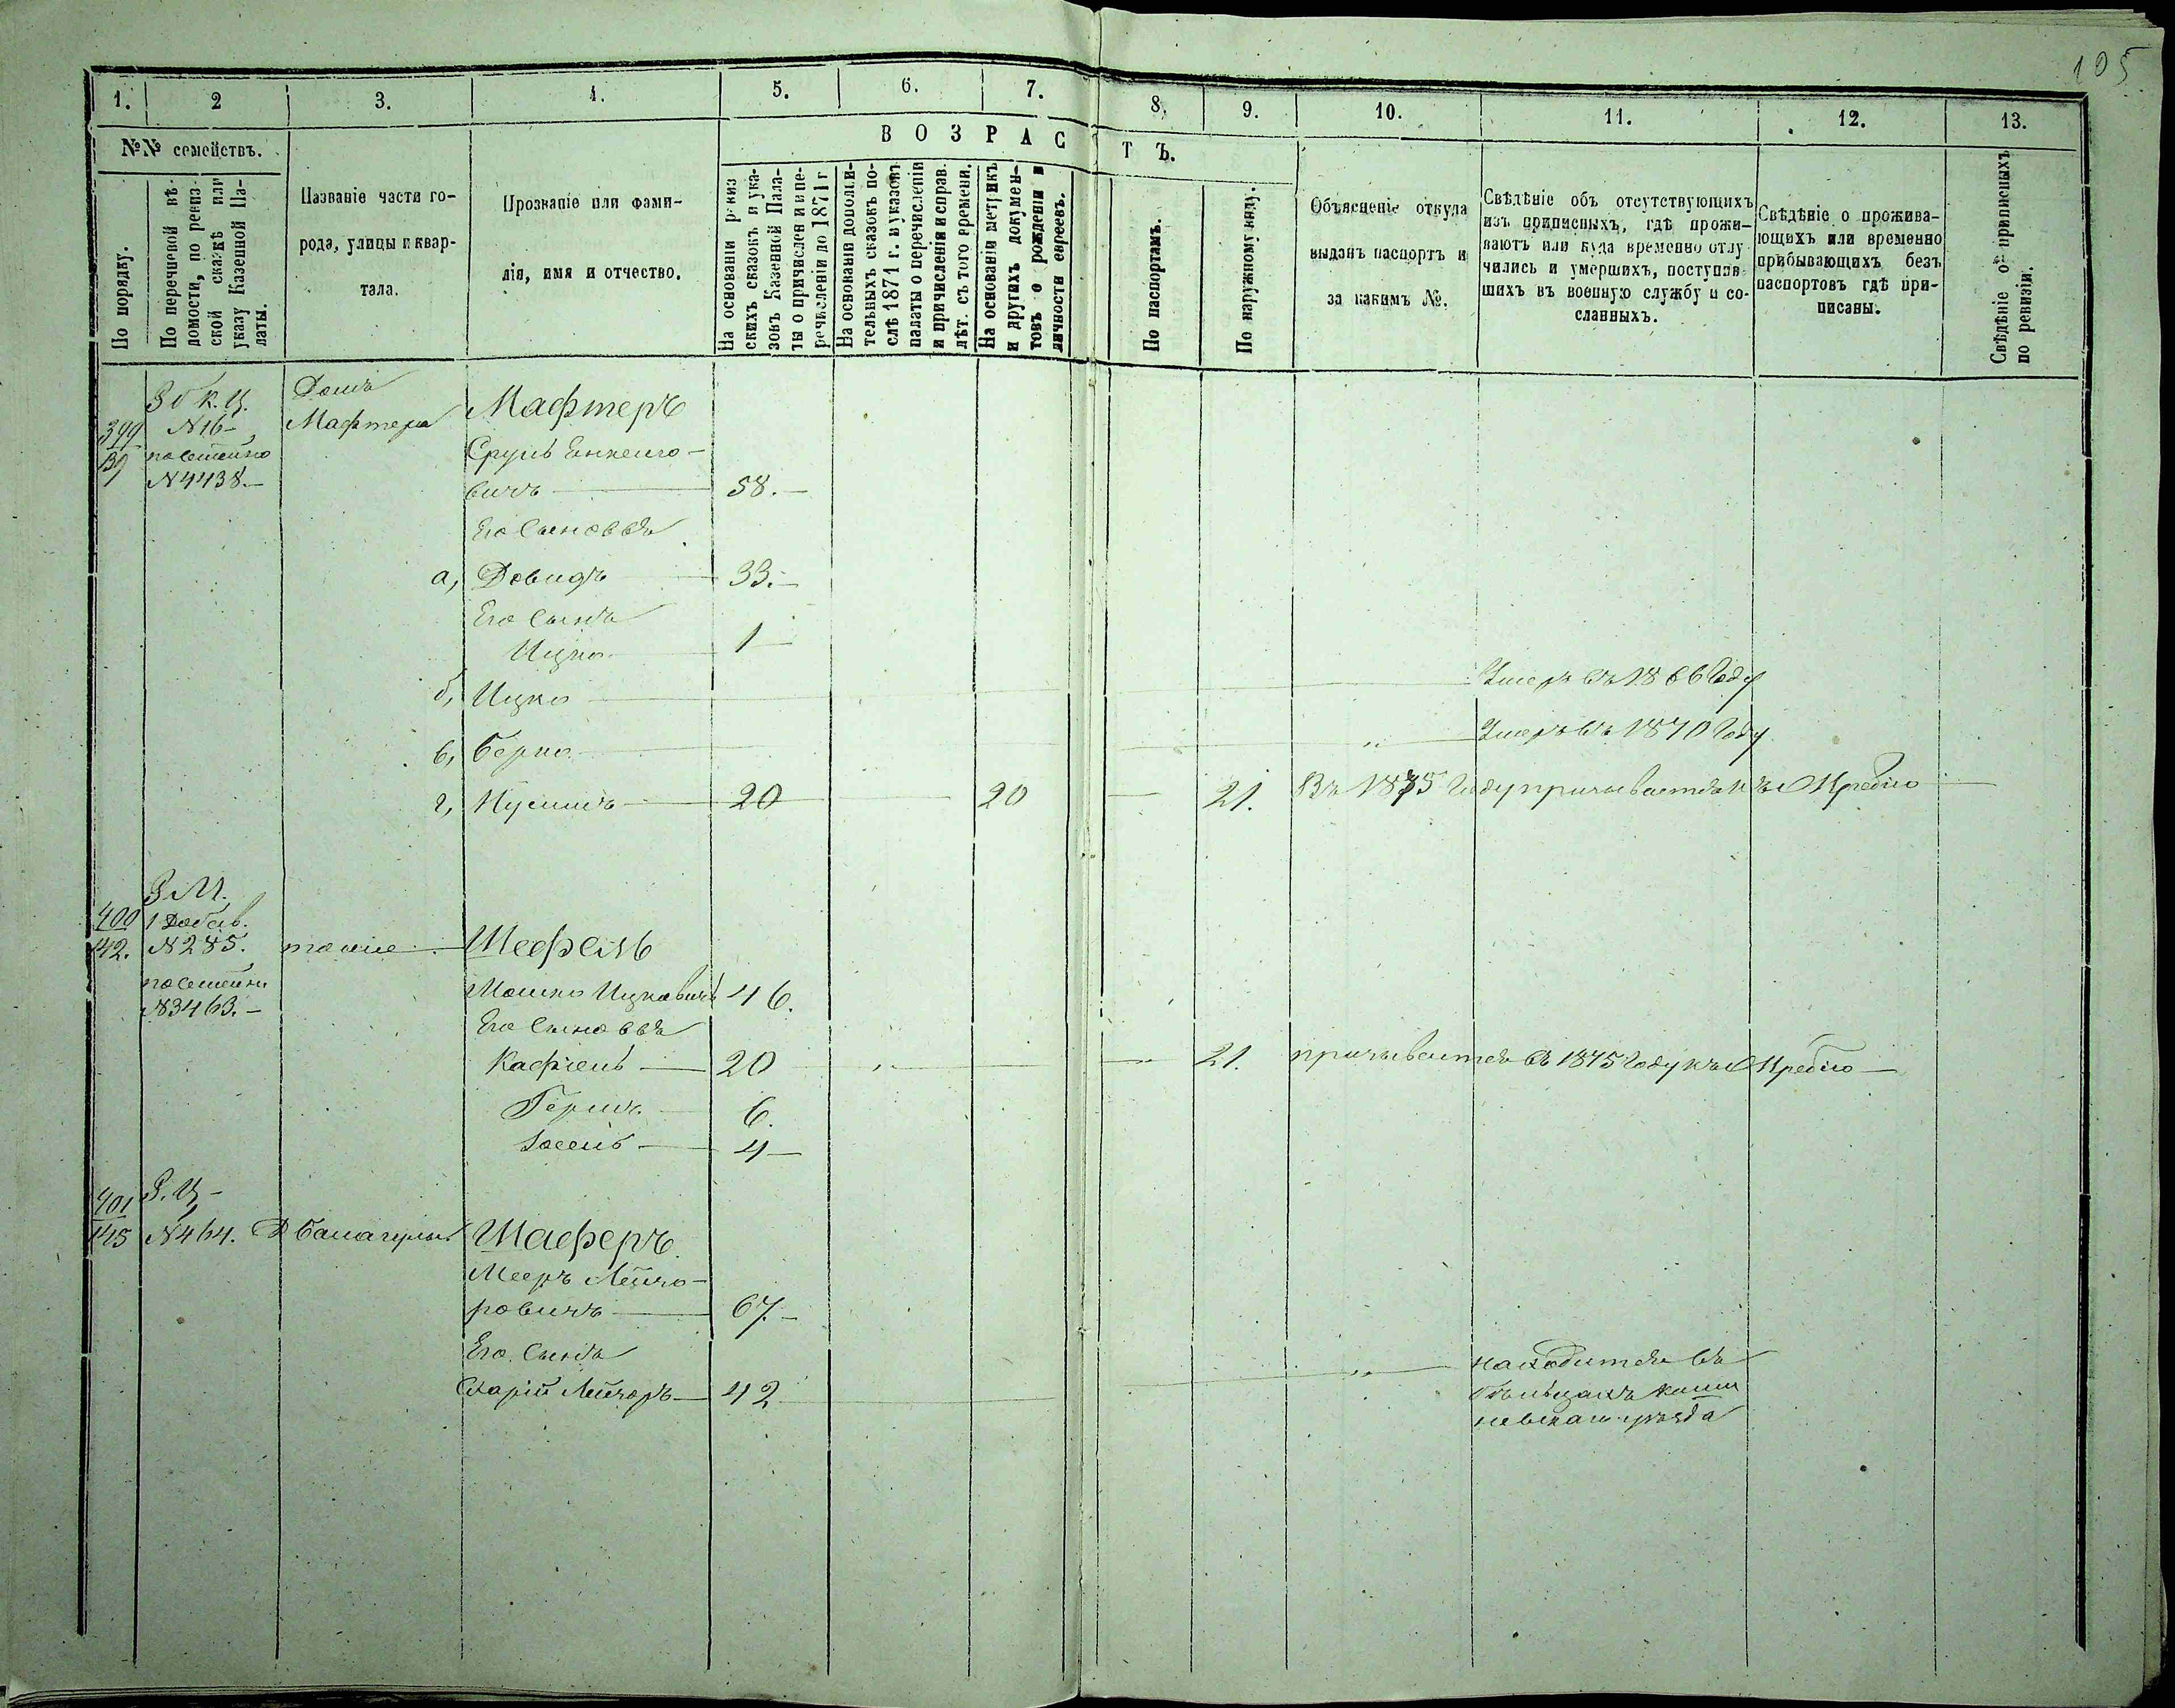 105
1. 2 3. 4. 5. 6. 7. 8, 9. 10. 11. 12. 13.
№№ семействъ.
В О З Р А С Т Ъ.
По порядку.
По перечневой вѣ-
домости, по ревиз-
ской сказкѣ или
указу Казенной Па-
латы.
Названіе части го-
рода, улицы и квар-
тала.
Прозваніе или фами-
лія, имя и отчество.
На основаніи ревиз
скихъ сказокъ и ука-
зовъ Казенной Пала-
ты о причислен и пе-
речисленіи до 1871 г
На основаніи дополни-
тельныхъ сказокъ по-
слѣ 1871 г. и указовъ
палаты о перечисленіи
и причисленіи и справ.
лѣт. съ того времени.
На основаніи метрикъ
и другихъ докумен-
товъ о рожденіи и
личности евреевъ.
По паспортамъ.
По наружному виду.
Объясненіе откуда
выданъ паспортъ и
за какимъ №.
Свѣдѣніе объ отсутствующихъ
изъ приписныхъ, гдѣ прожи-
ваютъ или куда временно отлу
чились и умершихъ, поступив
шихъ въ военную службу и со-
сланныхъ.
Свѣдѣніе о прожива-
ющихъ или временно
прибывающихъ безъ
паспортовъ гдѣ при-
писаны.
Свѣдѣніе о приписныхъ
по ревизіи.
Домъ
Мафтера
399 N 16-
139 посемейно
N 4438.-
Мафтеръ
Сруль Енкелио-
вичъ 58.-
Его Сыновья
а, Довидъ 33.-
Его Сынъ
Ицко 1-
б, Ицко Умеръ въ 1866 Году
в, Берко " Умеръ въ 1870 Году
г, Нусимъ 20 20 21. Въ 1875 Году призывается къ Жребію
Р М.
400 1 Добав.
142. N 285. тоже Шефель
посемейн
N 3463.-
Мошко Ицковичъ 46.
Его Сыновья
Кафтель 20 21. призывается въ 1875 Году къ Жребію
Гершъ 6.
Іосель 4-
401 Р. Ц-
145 N 464. Шаферъ
Мееръ Лейзо-
ровичъ 67.-
Его Сынъ
Лейзоръ 42 " находится въ
Кеши
невскаго уѣзда